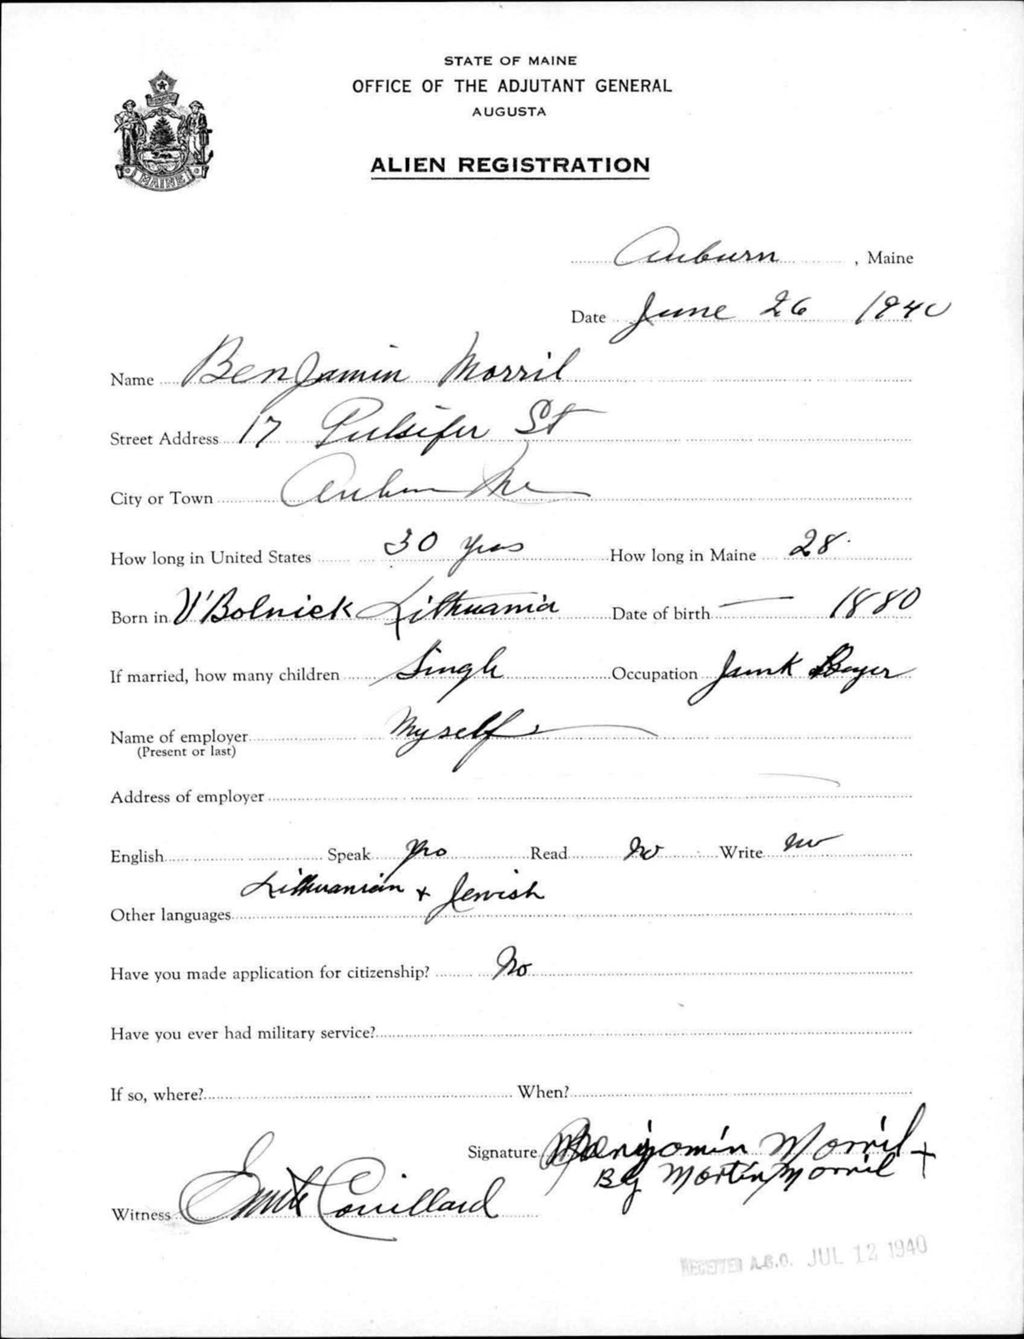 STATE OF MAINE
OFFICE OF THE ADJUTANT GENERAL
AUGUSTA
ALIEN REGISTRATION
MAINE
Auburn, Maine
Date June 26 1940
Name Benjamin Morril
Street Address 17 Pulsifer St
City or Town Auburn Me
How long in United States 30 yrs How long in Maine 28
Born in V'Bolnick Lithuania Date of birth — 1880
If married, how many children Single Occupation Junk Buyer
Name of employer Myself
(Present or last)
Address of employer
English Speak Yes Read No Write No
Lithuanian + Jewish
Other languages
Have you made application for citizenship? No
Have you ever had military service?
If so, where? When?
Signature Benjamin Morril +
By Martin Morril
Witness Couillard
RECEIVED A.G.O. JUL 12 1940